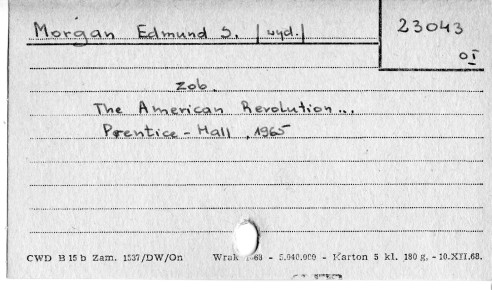 Morgan Edmund S. [wyd.]
23043
OI
zob.
The American Revolution...
Prentice-Hall, 1965
CWD B 15 b Zam. 1537/DW/On Wrak 1968 - 5.040.000 - Karton 5 kl. 180 g. - 10.XII.68.